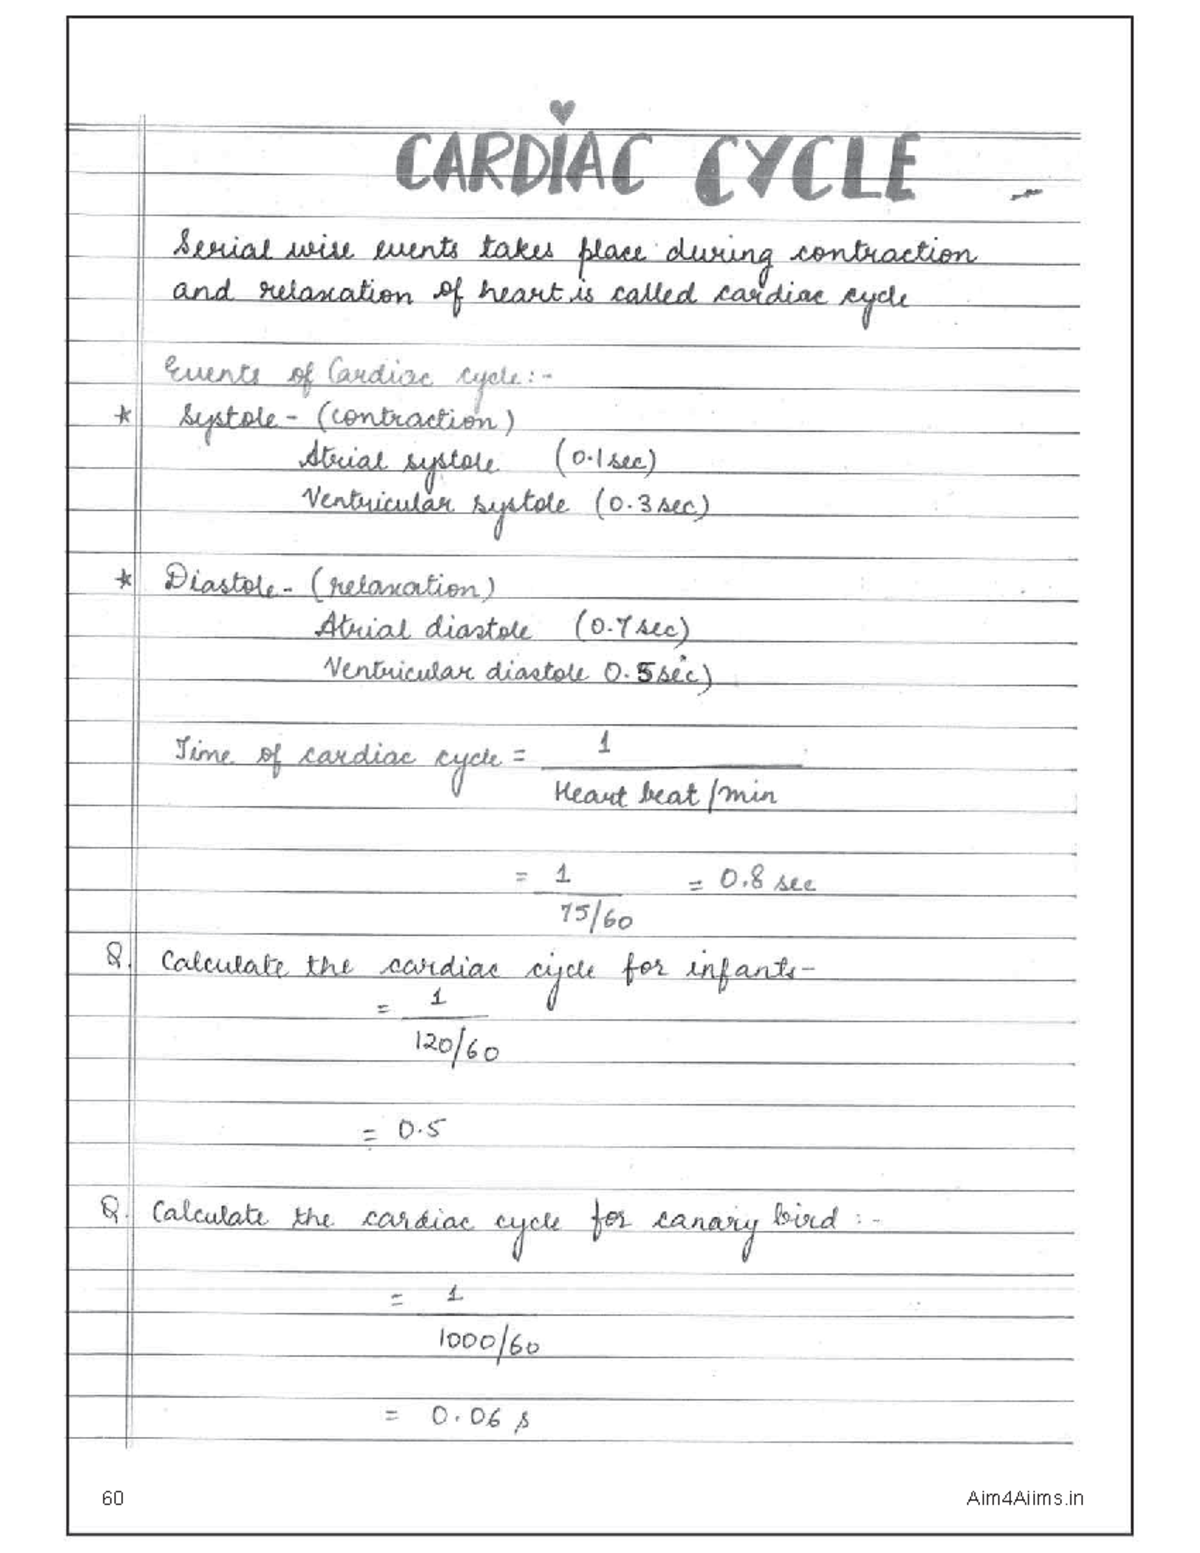 CARDIAC CYCLE -
Serial wise events takes place during contraction
and relaxation of heart is called cardiac cycle
Events of Cardiac cycle:-
* Systole - (contraction)
Atrial systole (0.1sec)
Ventricular systole (0.3sec)
* Diastole - (relaxation)
Atrial diastole (0.7sec)
Ventricular diastole 0.5sec)
Time of cardiac cycle = 1
Heart beat/min
= 1 = 0.8 sec
75/60
Q. Calculate the cardiac cycle for infants-
= 1
120/60
= 0.5
Q. Calculate the cardiac cycle for canary bird :-
= 1
1000/60
= 0.06 s
60 Aim4Aiims.in